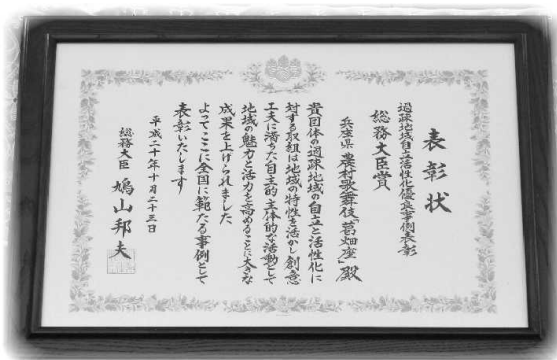 表彰状
過疎地域自立活性化優良事例表彰
総務大臣賞
兵庫県 農村歌舞伎「葛畑座」殿
貴団体の過疎地域の自立と活性化に
対する取組は地域の特性を活かし創意
工夫に満ちた自主的主体的な活動として
地域の魅力と活力を高めることに大きな
成果を上げられました
よってここに全国に範たる事例として
表彰いたします
平成二十年十月二十三日
総務大臣 鳩山邦夫